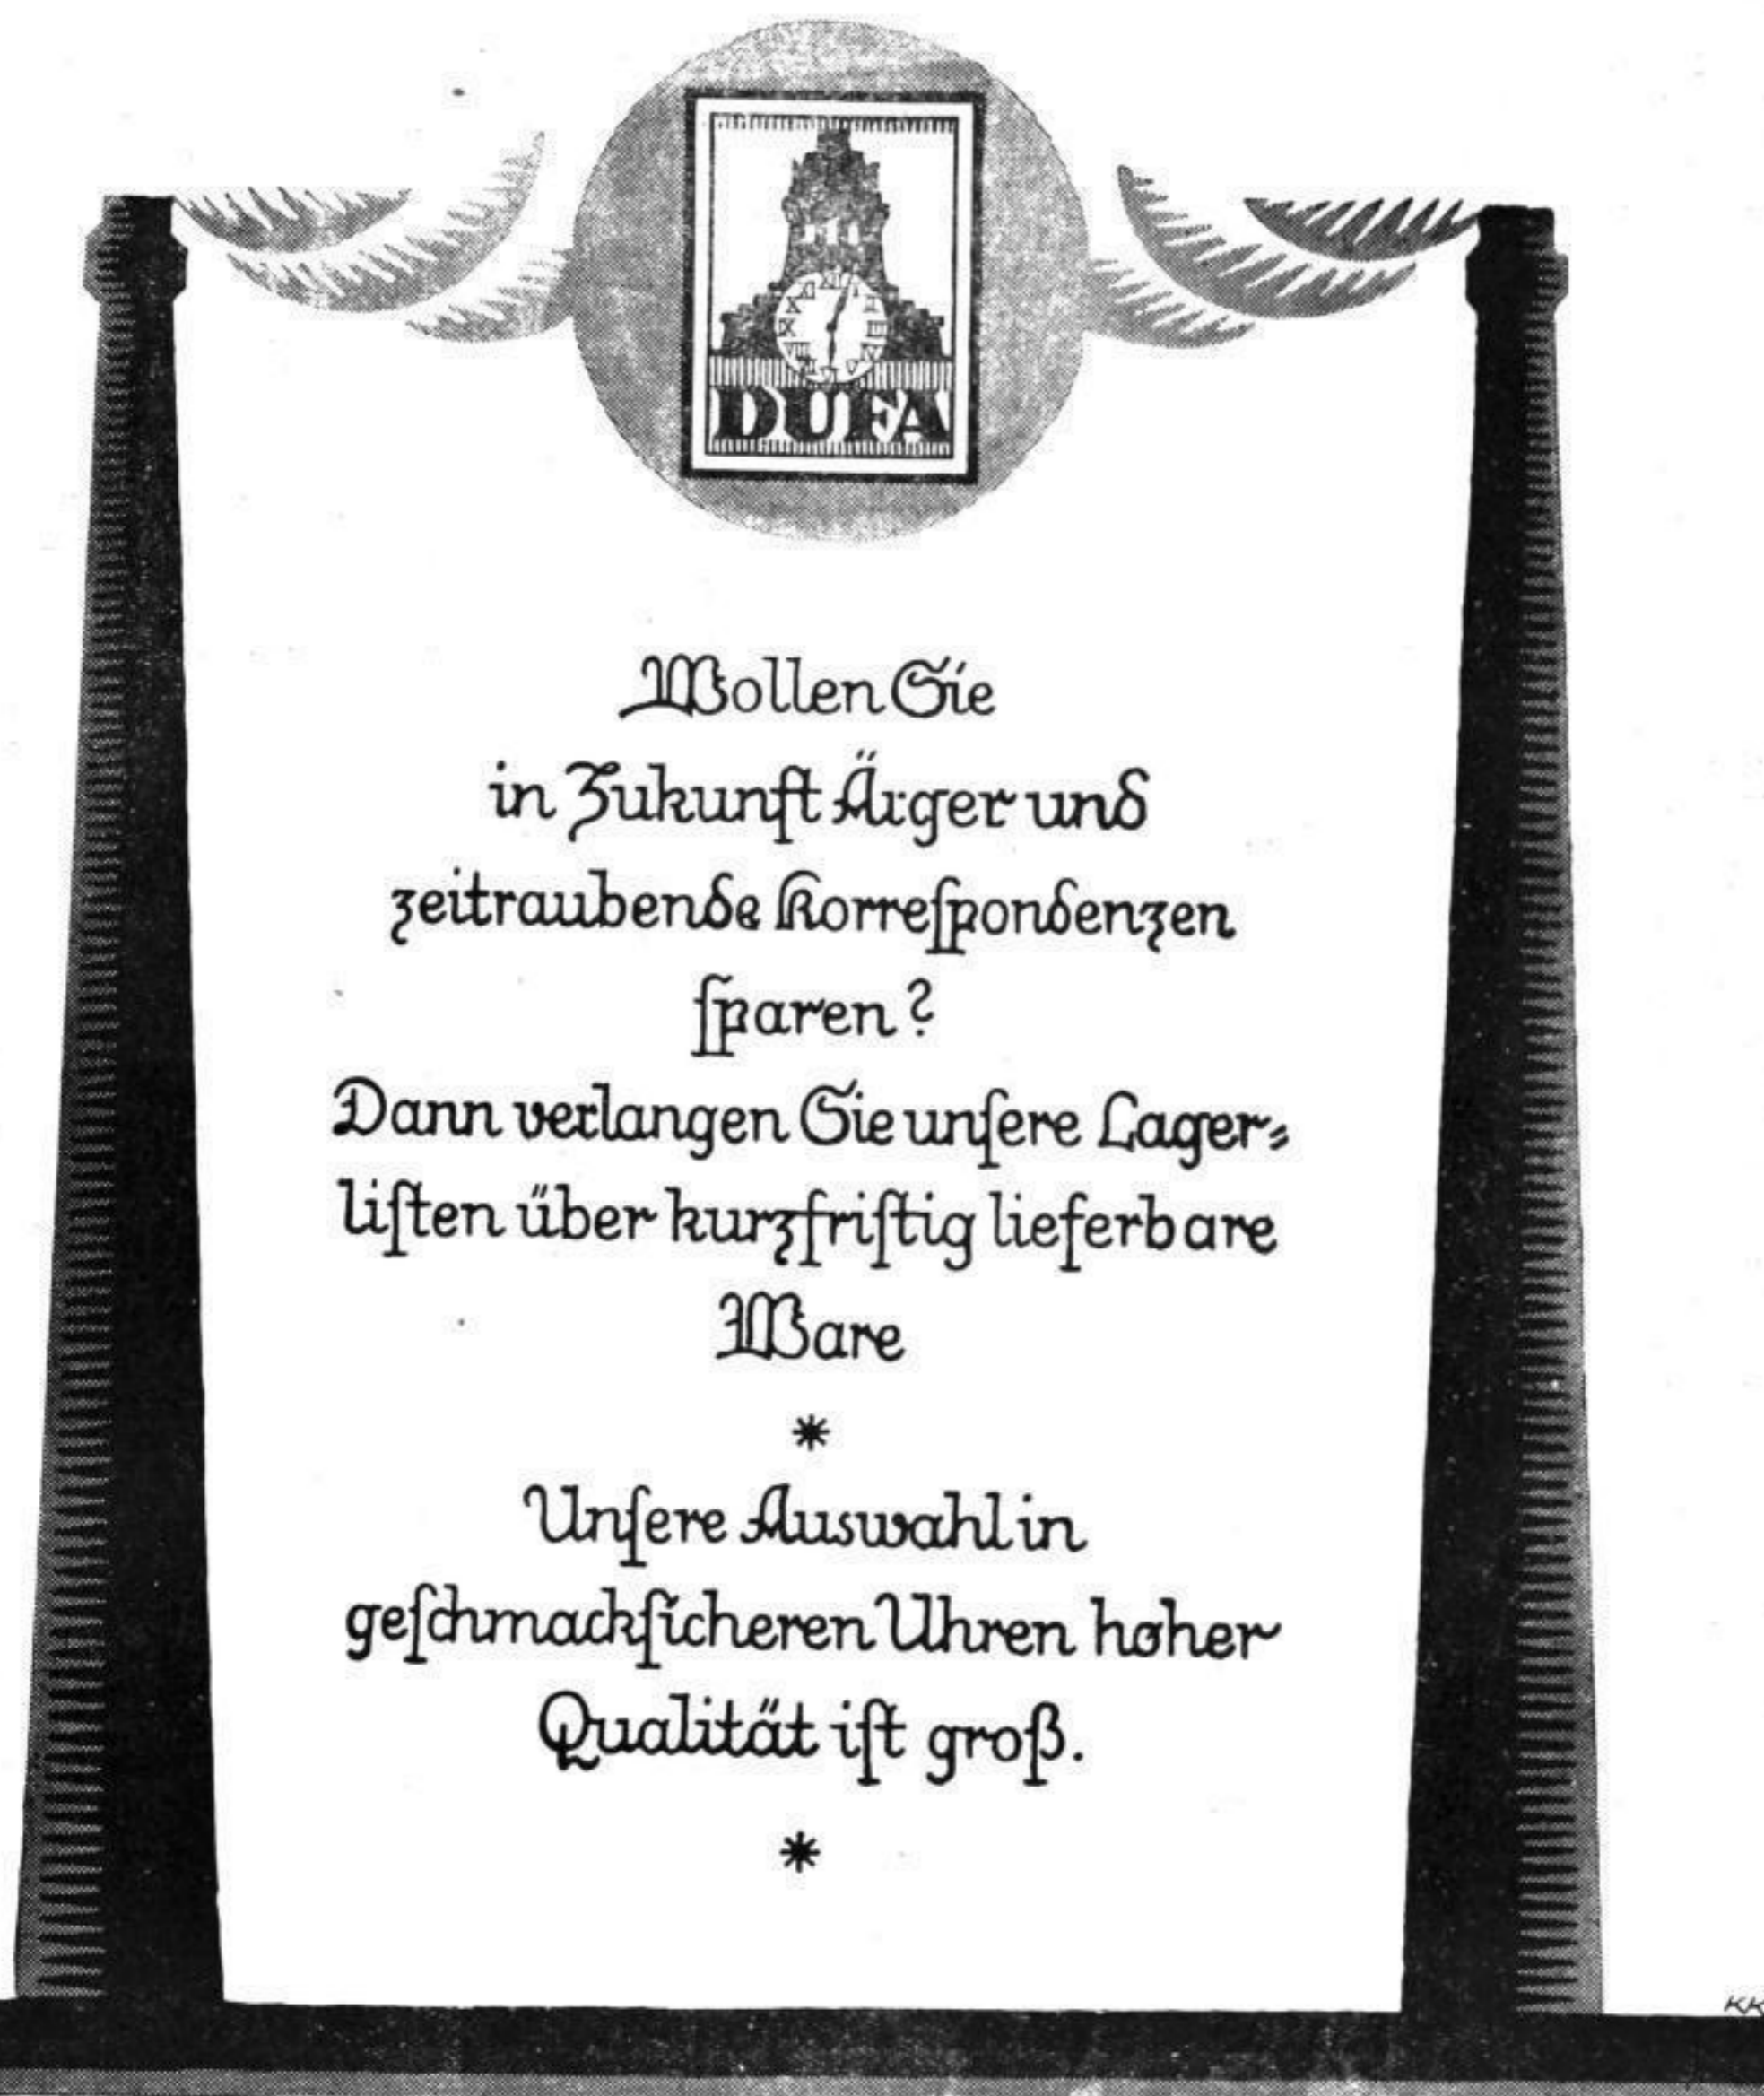 DUFA
Wollen Sie
in Zukunft Ärger und
zeitraubende Korreſpondenzen
ſparen?
Dann verlangen Sie unſere Lager⸗
liſten über kurzfriſtig lieferbare
Ware
*
Unſere Auswahl in
geſchmackſicheren Uhren hoher
Qualität iſt groß.
*
KK